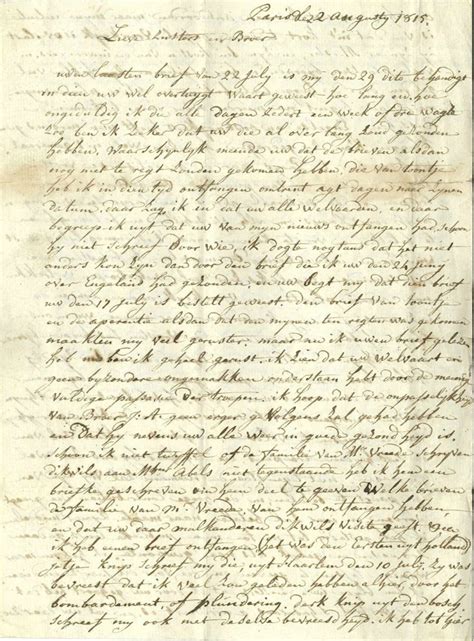 Paris de 2 Augusty 1815.
Lieve Zuster en Broer
uwen laasten brief van 22 July is my den 29 dito
indien uw wel overtuygt waart geweest hoe lang en hoe
ongeduldig ik die alle dagen zedert een week of drie
zoo ben ik zeker dat uw die al over lang zoud gezonden
hebben, Waarschynlyk meende uw dat de brieven alsdan
nog niet te regt zouden gekomen hebben, die van
heb ik in dien tyd ontfangen omtrent agt dagen na zynen
datum, daar zag ik in dat uw alle welvaeren, en
begreep ik uyt dat uw van myn nieuws ontfangen had, schoon
hy niet schreef Door wie, ik dogt nogtans dat het niet
anders kon zyn dan door den brief die ik uw den 24 Juny
over Engeland had gezonden, en uw zegt my dat dien brief
uw den 17 July is bestelt geweest. den brief van
en de aparentie alsdan dat den mynen ten regten was gekomen
maakten my veel geruster, maar nu ik uwen brief gelezen
heb ben ik geheel gerust. ik zien dat uw Welvaart en
geen byzondere ongemakken onderstaan hebt door de
passasie der troepen. ik hoop dat de onpasselykheyd
van Broer geen erger gevolgen zal gehad hebben
en Dat hy nevens uw alle weer in goede gezondheyd is.
schoon ik niet twyffel of de Familie van Mr Vreede schryven
dikwils aan Mme Abels niet tegenstaande heb ik hem een
briefke geschreven om hem deel te geeven Welke brieven
de familie van Mr Vreede van hem ontfangen hebben
en dat uw daar malkanderen dikwils
ik heb eenen brief ontfangen (het was den Eersten uyt holland
Jetje Knip schreef my die, uyt Haarlem den 10 July, zy was
bevreest dat ik veel zou geleden hebben alhier, door het
bombardement, of plundering, derk Knip uyt den bosch
schreef my ook met dezelve bevreesdheyd. ik heb tot